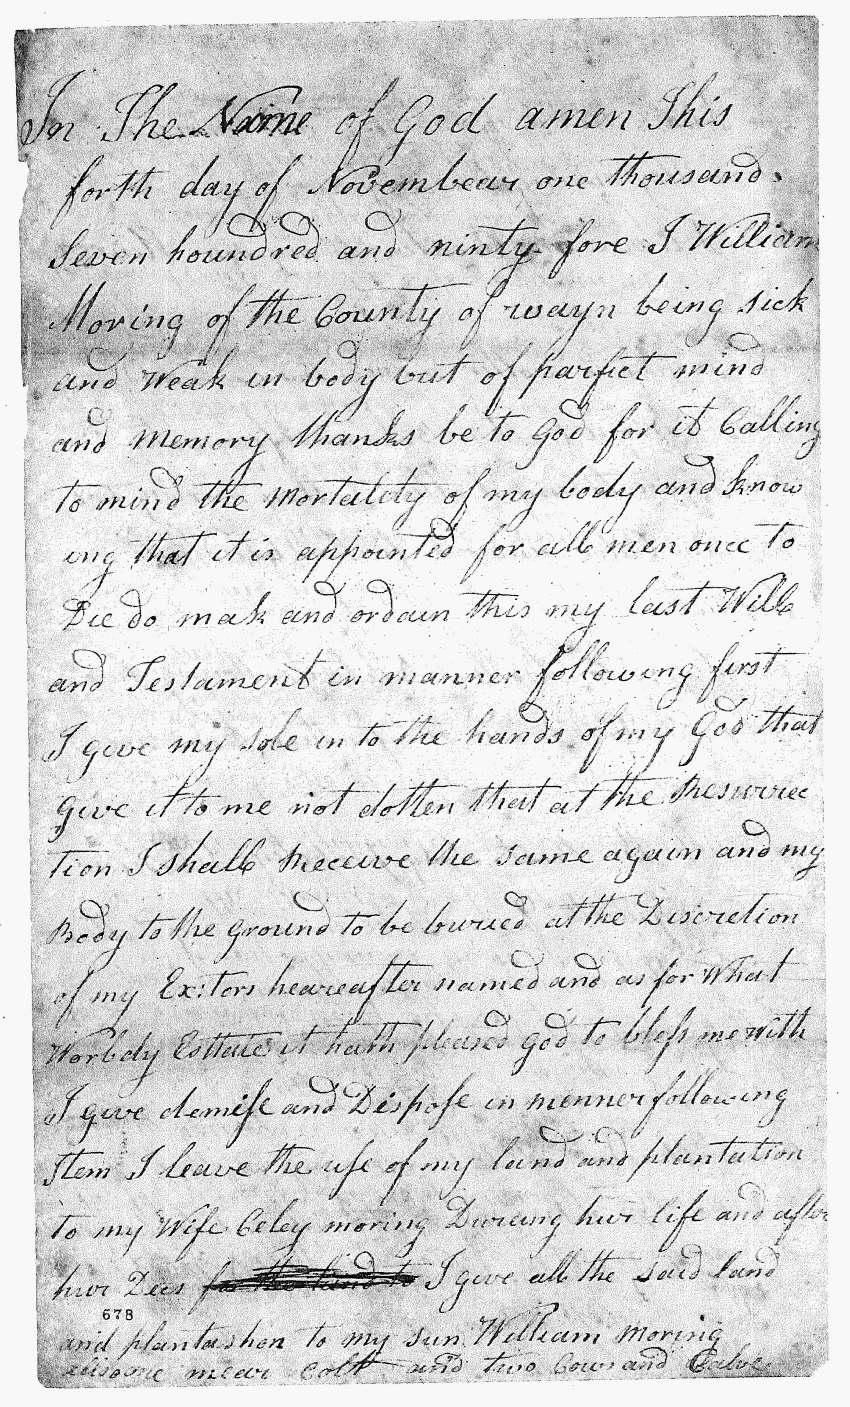 In The Name of God amen This
forth day of Novembear one thousand
Seven houndred and ninty fore I William
Moring of the County of wayn being sick
and Weak in body but of parfict mind
and Memory thanks be to God for it Calling
to mind the Mortality of my body and know
ing that it is appointed for all men once to
Die do mak and ordain this my last Will
and Testament in manner following first
I give my sole in to the hands of my God that
give it to me not dotten that at the Resurrec
tion I shall Receive the same again and my
Body to the ground to be buried at the Discretion
of my Ex:tors heareafter named and as for What
Worldy Esttate it hath pleased God to bless me with
I give demise and Dispose in menner following
Item I leave the use of my land and plantation
to my Wife Celey moring Dureing hur life and after
hur Dees I give all the said land
678
and plantashon to my sun William moring
allso one mear colt and two Cows and Calve